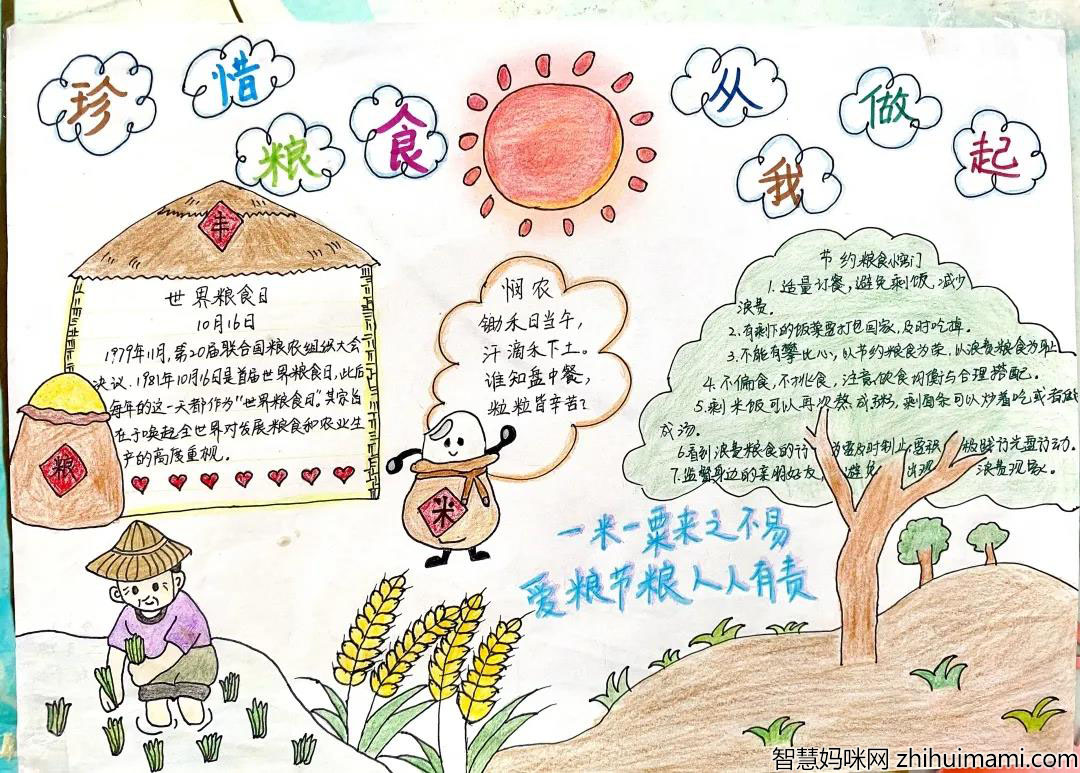 珍惜粮食
从我做起
丰
世界粮食日
10月16日
1979年11月,第20届联合国粮农组织大会
决议.1981年10月16日是首届世界粮食日,此后
每年的这一天都作为"世界粮食日".其宗旨
在于唤起全世界对发展粮食和农业生
产的高度重视。
粮
悯农
锄禾日当午,
汗滴禾下土。
谁知盘中餐,
粒粒皆辛苦?
米
节约粮食小窍门
1.适量订餐,避免剩饭,减少
浪费。
2.有剩下的饭菜要打包回家,及时吃掉。
3.不能有攀比心,以节约粮食为荣,以浪费粮食为耻
4.不偏食,不挑食,注意饮食均衡与合理搭配。
5.剩米饭可以再次熬成粥,剩面条可以炒着吃或者做
成汤。
6.看到浪费粮食的行为要及时制止 积极践行光盘行动。
7.监督身边的亲朋好友,避免出现浪费现象。
一米一粟来之不易
爱粮节粮人人有责
智慧妈咪网 zhihuimami.com